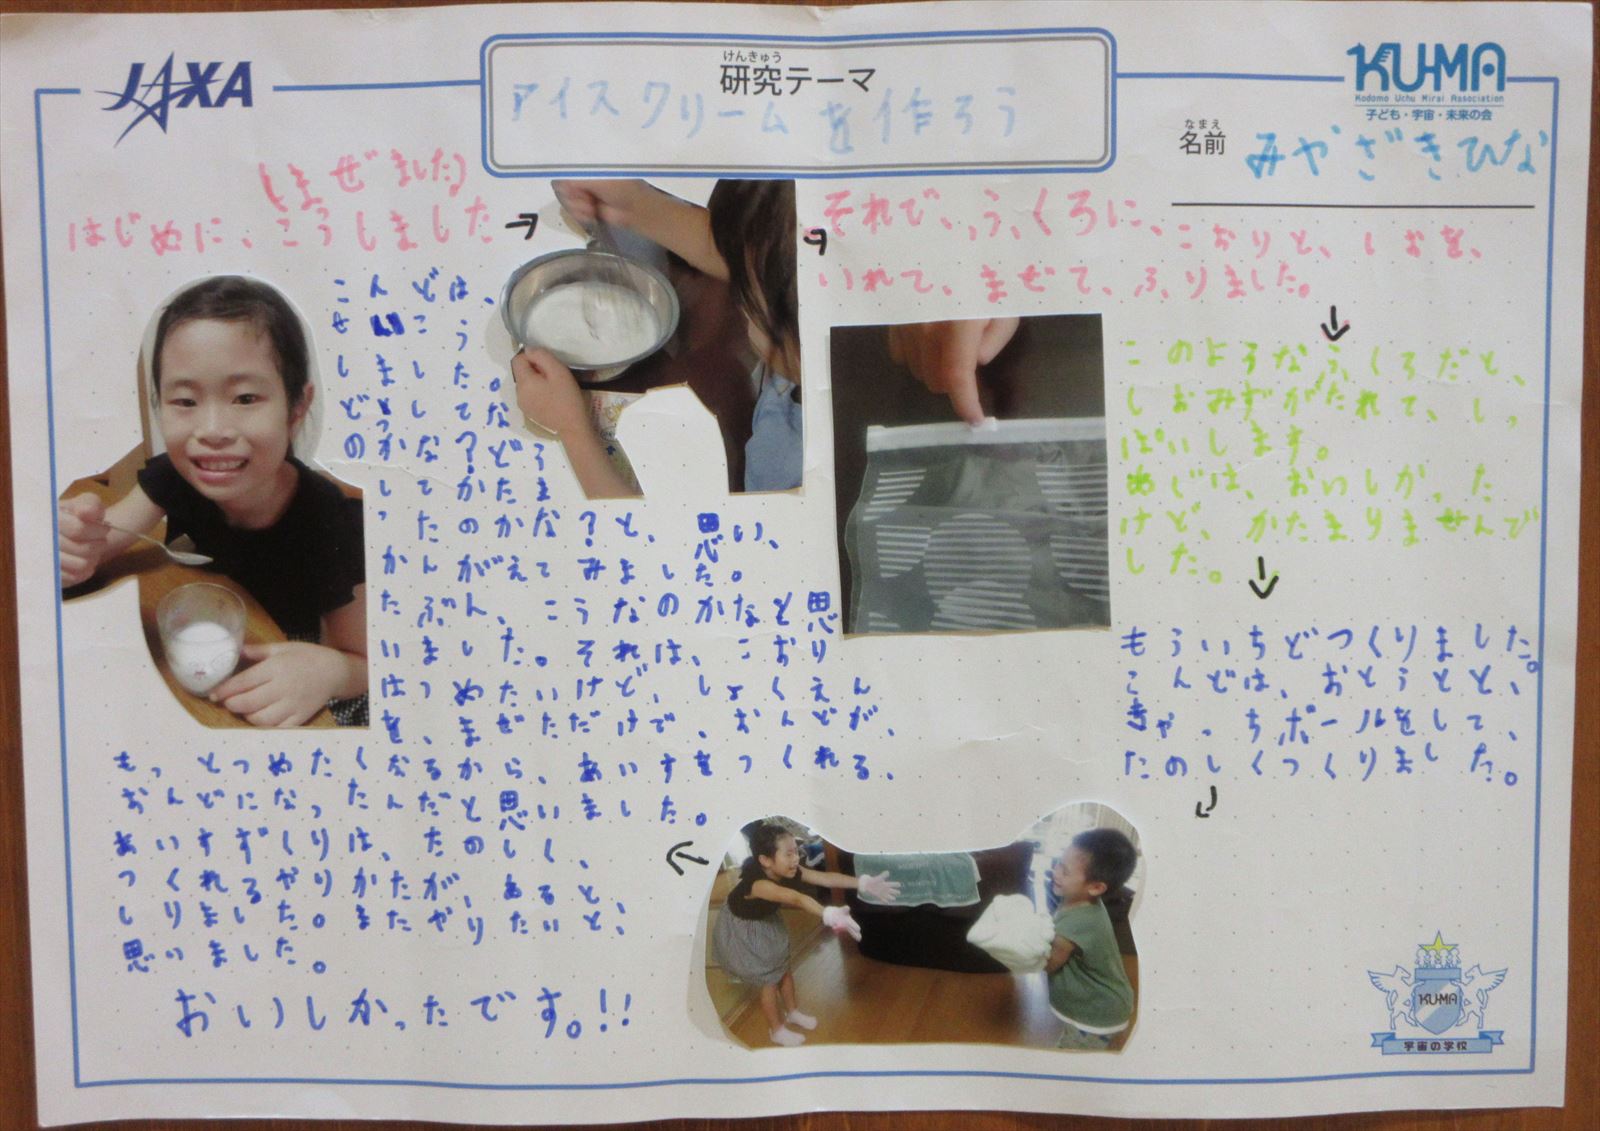 JAXA
けんきゅう
研究テーマ
アイスクリームを作ろう
KU-MA
Kodomo Uchu Mirai Association
子ども・宇宙・未来の会
なまえ
名前
みやざきひな
(まぜました)
はじめに、こうしました→
それで、ふくろに、こおりと、しおを、
いれて、まぜて、ふりました。
↓
このようなふくろだと、
しおみずがたれて、しっ
ぱいします。
あじは、おいしかった
けど、かたまりませんで
した。↓
もういちどつくりました。
こんどは、おとうとと、
きゃっちボールをして、
たのしくつくりました。
こんどは、
せいこう
しました。
どうしてな
のかな?どう
してかたま
ったのかな?と、思い、
かんがえてみました。
たぶん、こうなのかなと思
いました。それは、こおり
はつめたいけど、しょくえん
を、まぜただけで、おんどが、
もっとつめたくなるから、あいすをつくれる、
おんどになったんだと思いました。
あいすずくりは、たのしく、
つくれるやりかたが、あると、
しりました。またやりたいと、
思いました。
おいしかったです。!!
KU-MA
宇宙の学校